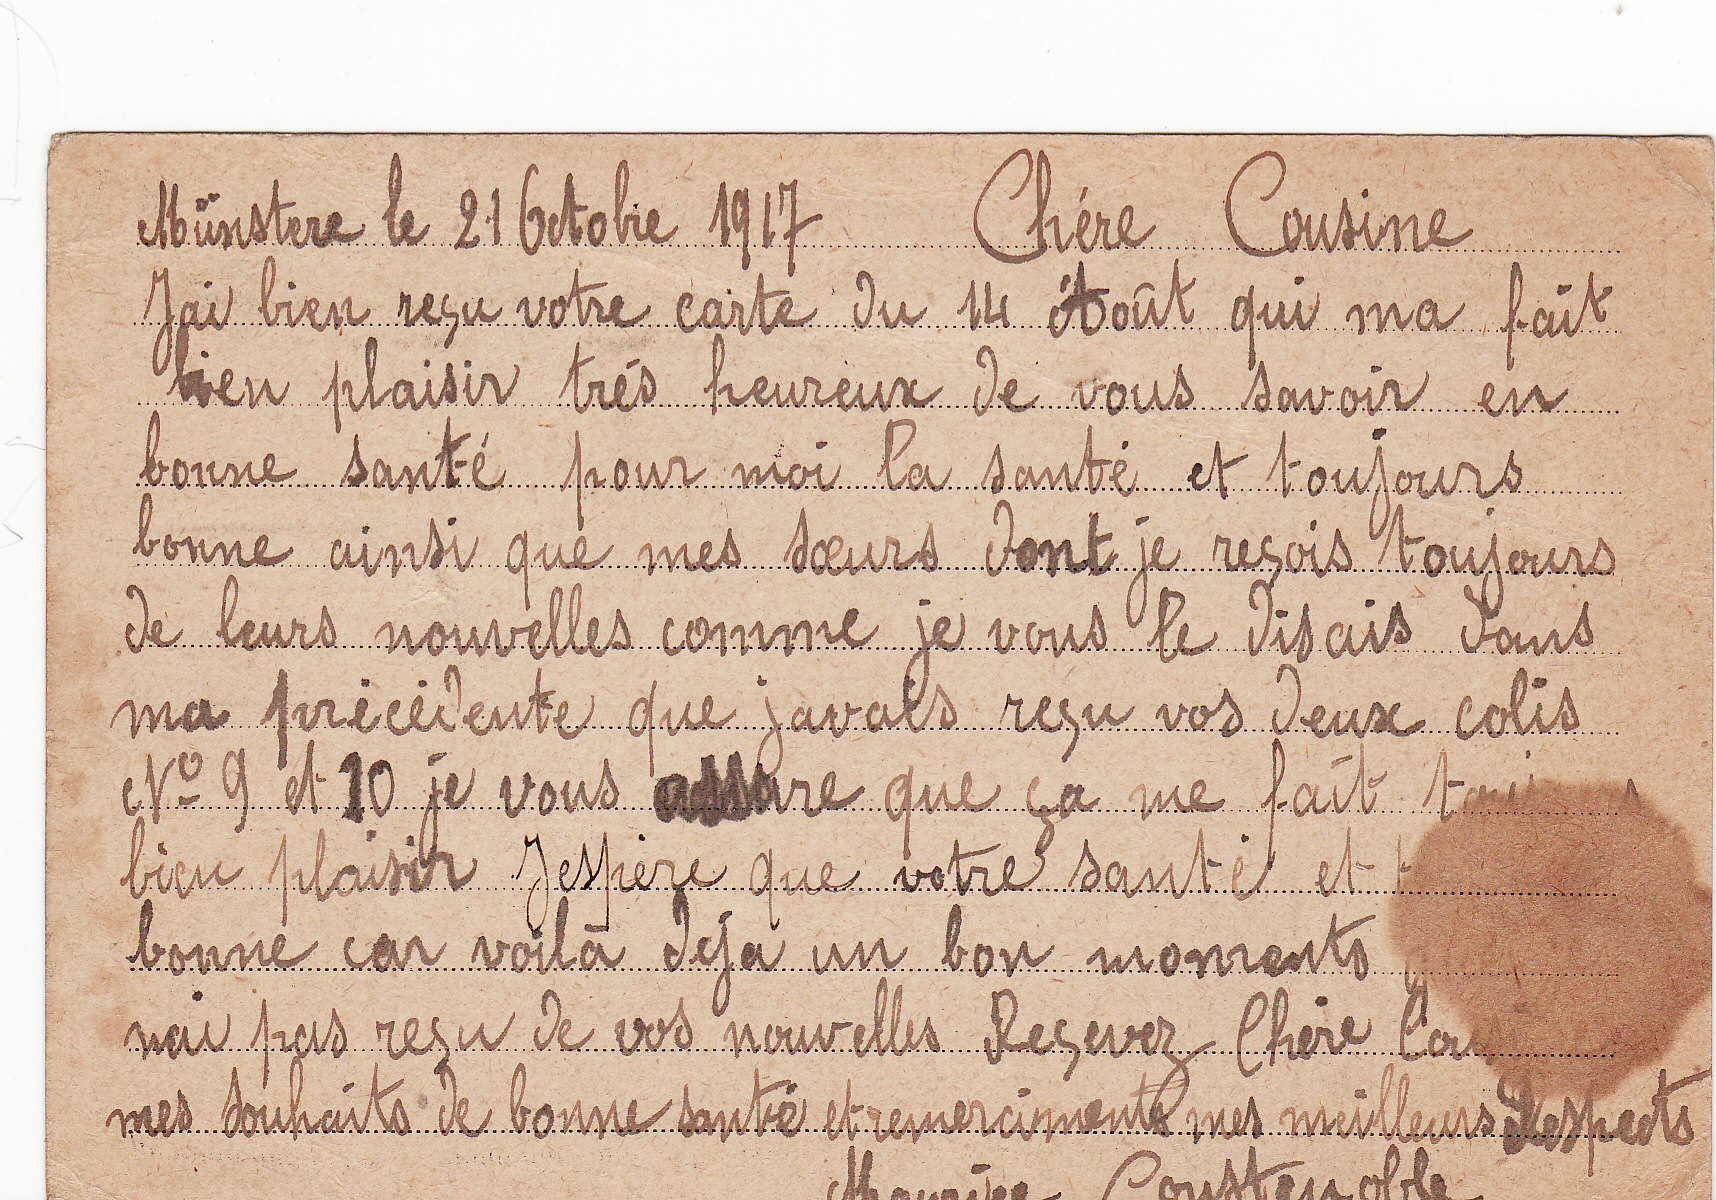 Münstere le 21 Octobre 1917 Chére Cousine
Jai bien reçu votre carte du 14 Août qui ma fait
bien plaisir trés heureux de vous savoir en
bonne santé pour moi la santé et toujours
bonne ainsi que mes sœurs dont je reçois toujours
de leurs nouvelles comme je vous le disais dans
ma précédente que javais reçu vos deux colis
Nº 9 et 10 je vous assure que ça me fait
bien plaisir Jespère que votre santé et
bonne car voilà deja un bon moments
nai pas reçu de vos nouvelles Reçevez Chère
mes souhaits de bonne santé et remerciments mes meilleurs Respects
Maurice Coustenoble